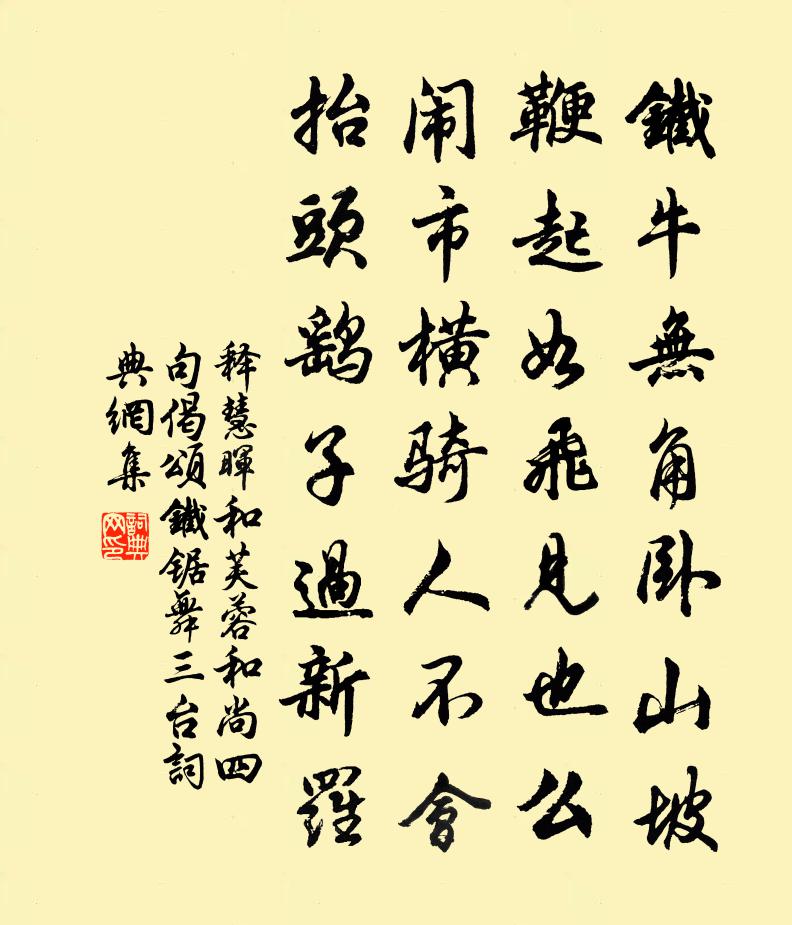 鐵牛無角臥山坡
鞭起如飛見也么
闹市橫騎人不會
抬頭鷂子過新羅
释慧暉和芙蓉和尚四
句偈頌鐵锯舞三台詞
典網集
詞典
网印